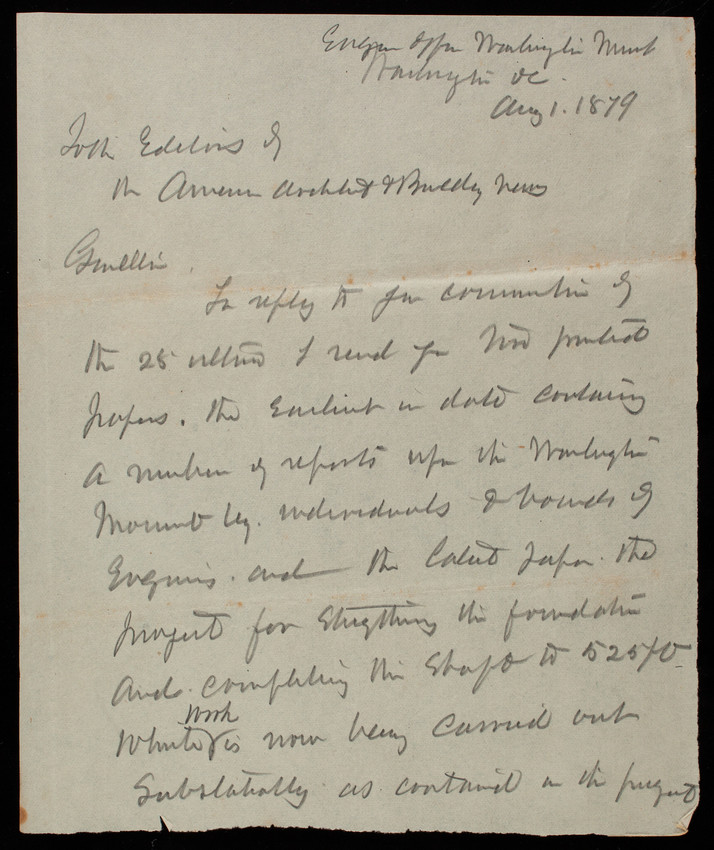 Engineer Office Washington Monument
Washington DC.
Aug 1. 1879
To the Editors of
the American Architect & Building News
Gentlemen
In reply to your communication of
the 25 ultimo I send you two printed
papers. the Earliest in date containing
a number of reports upon the Washington
Monument by individuals & boards of
Engineers. and the latest paper the
project for Strengthening the foundation
and completing the Shaft to 525 ft
which work is now being carried out
Substantially as contained in the project